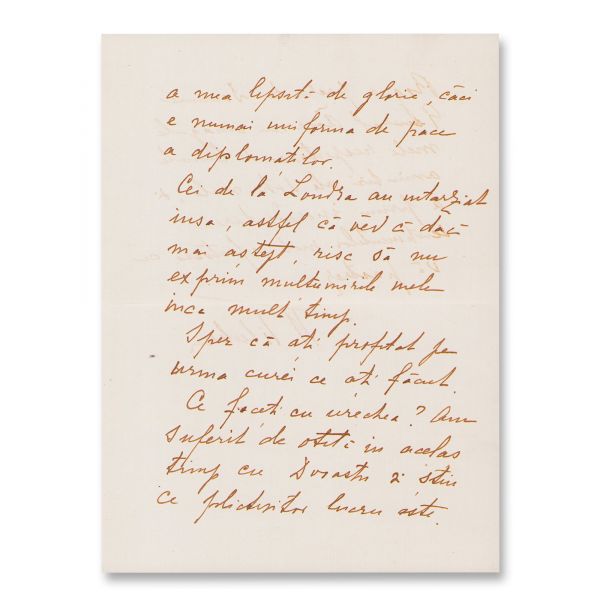 a mea lipsită de glorie, căci
e numai uniforma de pace
a diplomatilor.
Cei de la Londra au intarziat
insa, astfel că văd că dacă
mai astept, risc să nu
exprim multumirile mele
inca mult timp.
Sper că ati profitat pe
urma curei ce ati făcut.
Ce faceti cu urechea? Am
suferit de otită in acelas
timp cu Dvoastră si stiu
ce plictisitor lucru este.